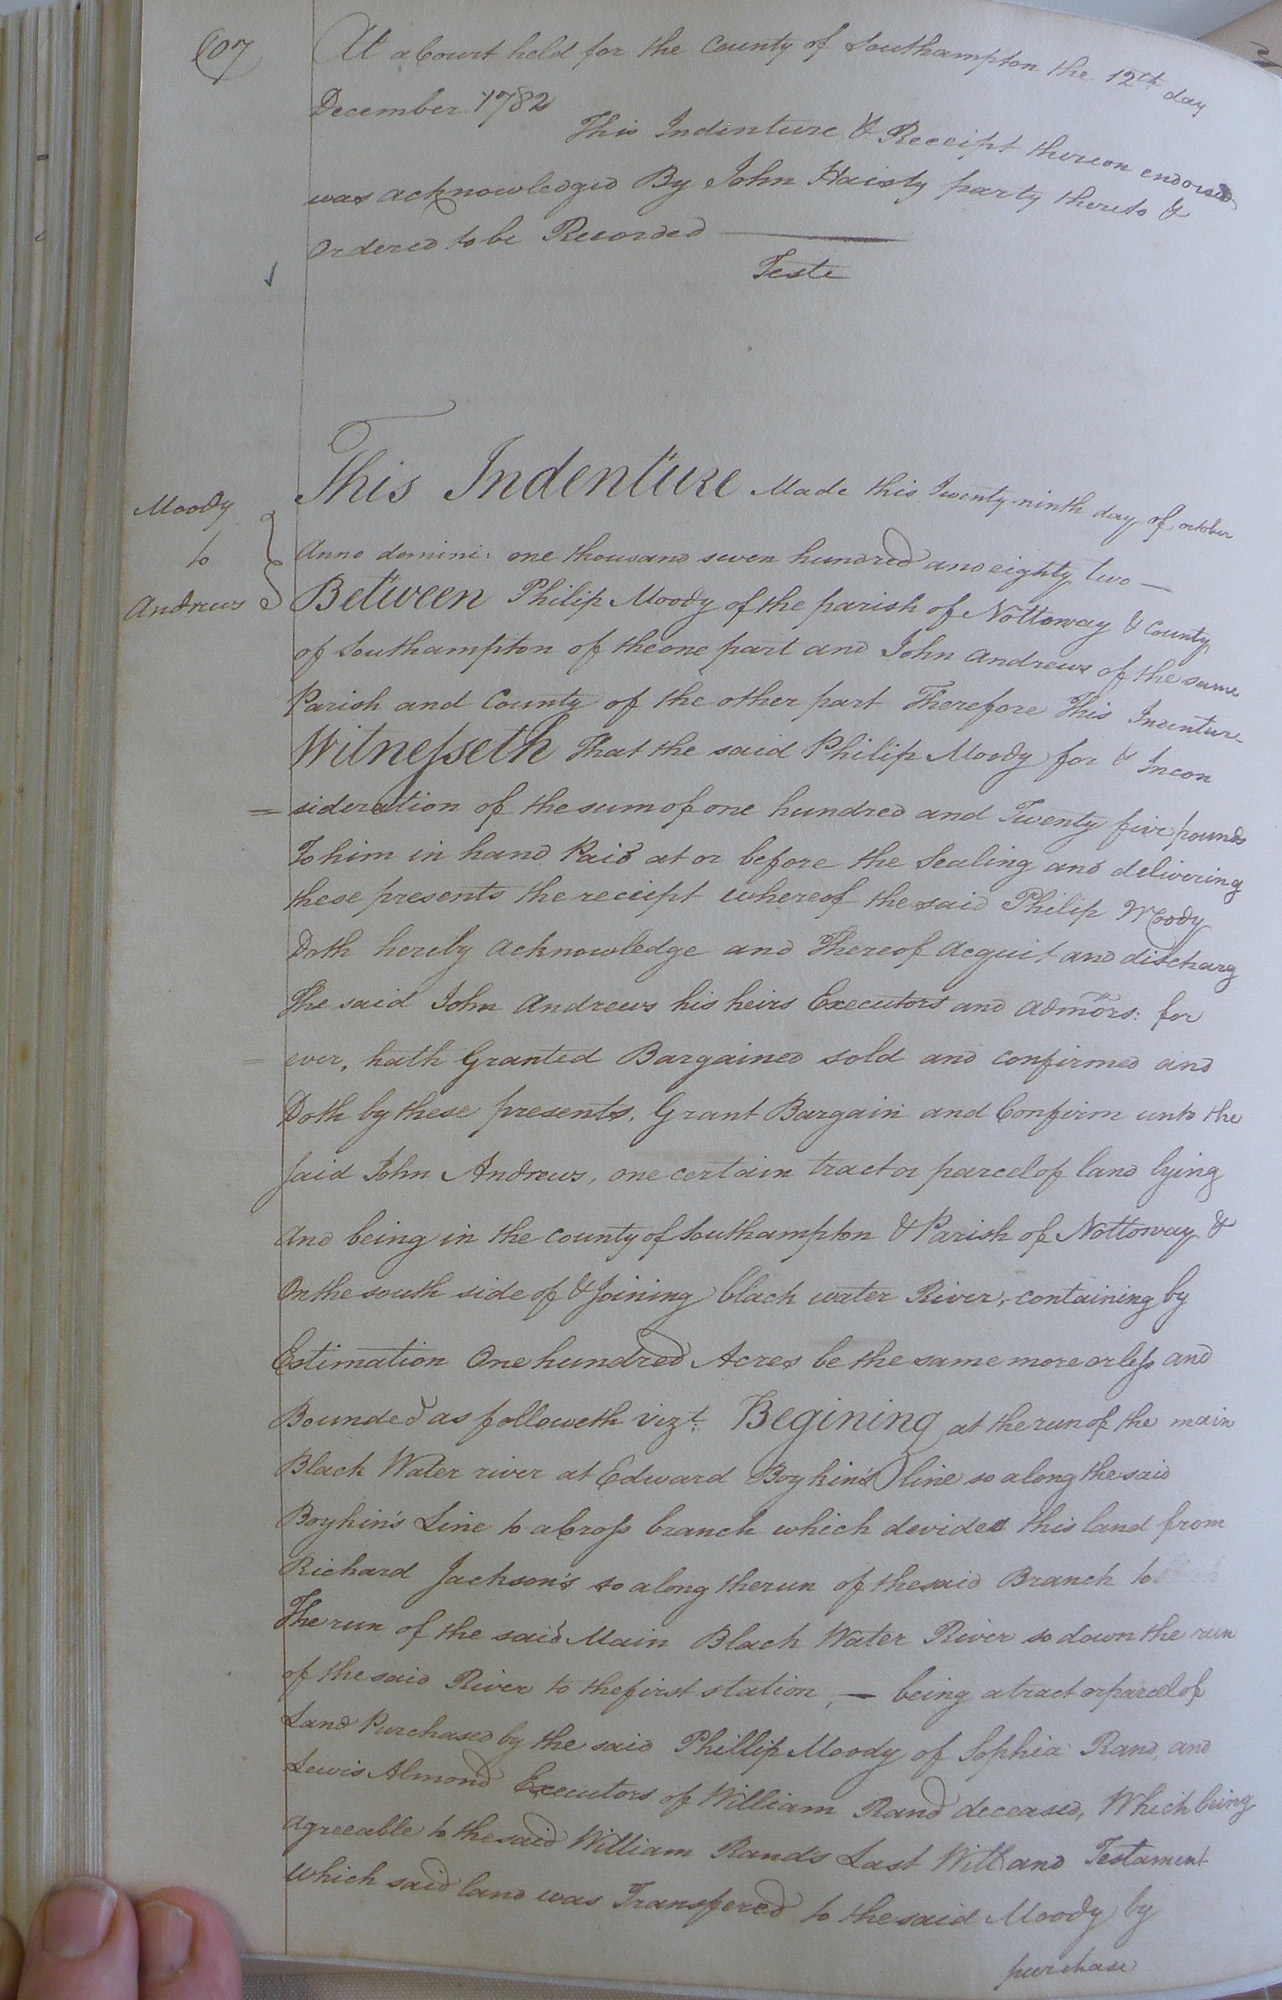 107
At a Court held for the County of Southampton the 12th day
December 1782
This Indenture & Receipt thereon endorsed
was acknowledged By John Haisty party thereto &
Ordered to be Recorded
Teste
Moody
to
Andrews
This Indenture Made this Twenty ninth day of october
Anno domini: one thousand seven hundred and eighty two —
Between Philip Moody of the parish of Nottoway & County
of Southampton of the one part and John Andrews of the same
Parish and County of the other part Therefore This Indenture
Witnesseth That the said Philip Moody for & Incon
= sideration of the sum of one hundred and Twenty five pounds
To him in hand Paid at or before the Sealing and delivering
these presents the receipt whereof the said Philip Moody
Doth hereby acknowledge and Thereof Acquit and discharg
The said John Andrews his heirs Executors and admors: for
ever, hath Granted Bargained sold and confirmed and
Doth by these presents, Grant Bargain and Confirm unto the
said John Andrews, one certain tract or parcel of land lying
And being in the county of Southampton & Parish of Nottoway &
On the south side of & Joining black water River, containing by
Estimation One hundred Acres be the same more or less and
Bounded as followeth vizt. Begining at the run of the main
Black Water river at Edward Boykin's line so along the said
Boykin's Line to a Cross branch which devides this land from
Richard Jackson's so along the run of the said Branch to
The run of the said Main Black Water River so down the run
of the said River to the first station, — being a tract or parcel of
Land Purchased by the said Phillip Moody of Sophia Rand, and
Lewis Almond Executors of William Rand deceased, Which being
Agreeable to the said William Rands Last Will and Testament
Which said land was Transfered to the said Moody by
purchase